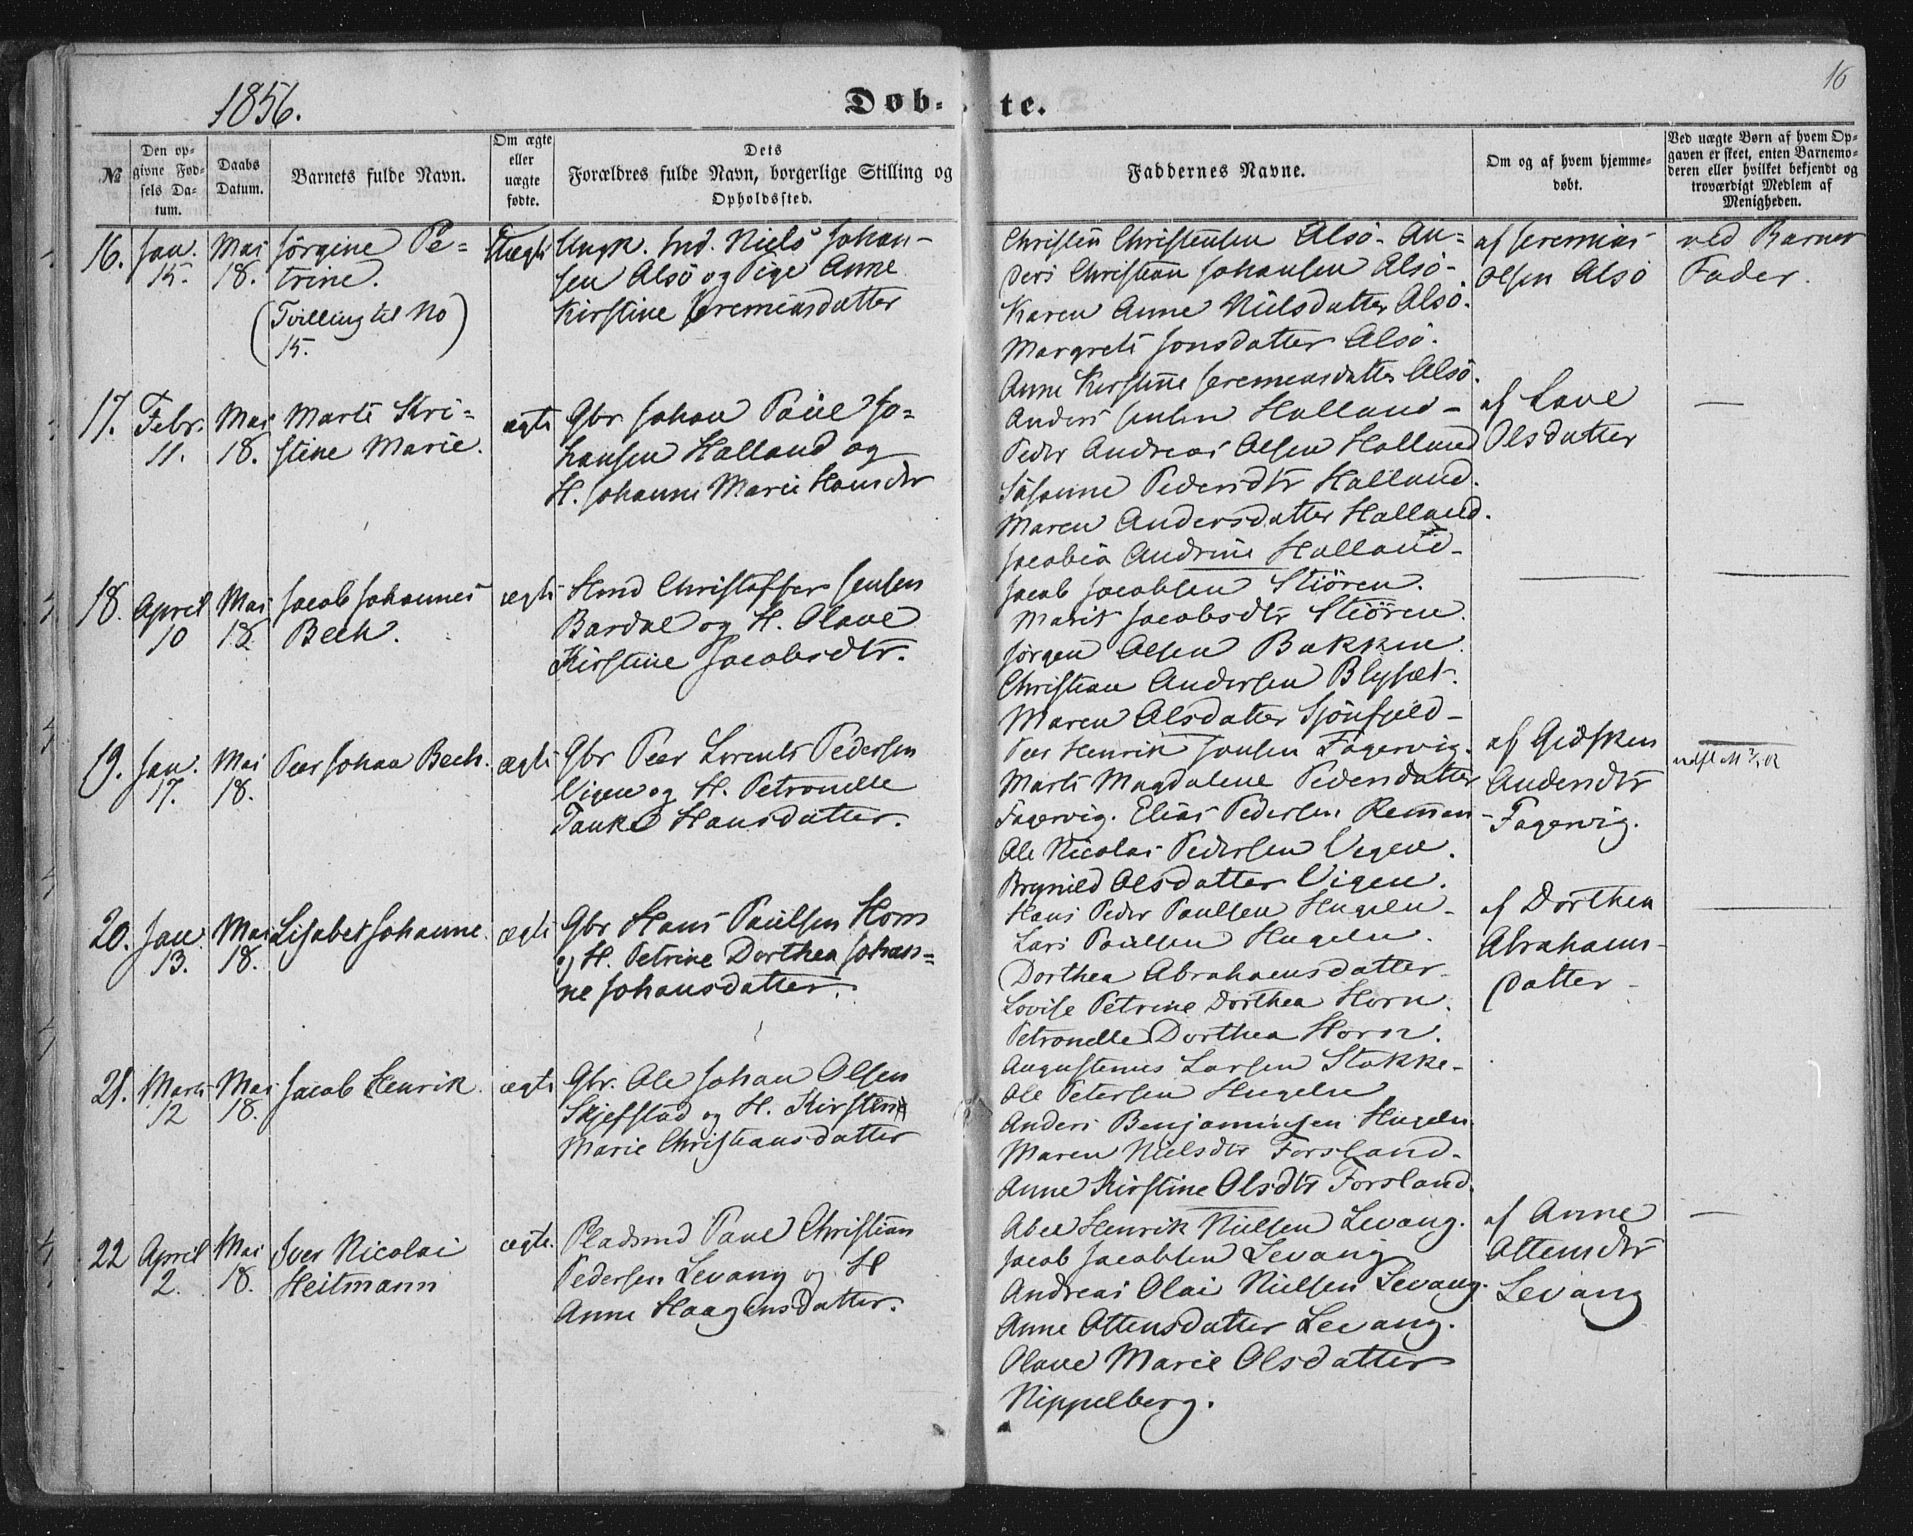 1856.
Døb-te.
16
№
Den opgivne Fødsels Datum.
Daabs Datum.
Barnets fulde Navn.
Om ægte eller uægte fødte.
Dets Forældres fulde Navn, borgerlige Stilling og Opholdssted.
Faddernes Navne.
Om og af hvem hjemmedøbt.
Ved uægte Børn af hvem Opgaven er skeet, enten Barnemoderen eller hvilket bekjendt og troværdigt Medlem af Menigheden.
16. Jan. 15. Mai 18.
Jørgine Pe-
trine.
(Tvilling til No
15.)
Uægte
Ungk. Ind. Niels Johan-
sen Alsø og Pige Anne
Kirstine Jeremiasdatter
Christen Christensen Alsø - An-
ders Christian Johansen Alsø -
Karen Anne Nielsdatter Alsø.
Margrete Jonsdatter Alsø.
Anne Kirstine Jeremiasdatter Alsø.
af Jeremias
Olsen Alsø
ved Barnets
Fader.
17. Febr. 11. Mai 18.
Marte Kri-
stine Marie.
ægte
Gbr Johan Paul Jo-
hansen Halland og
H. Johanne Marie Hansdtr
Anders Jensen Halland -
Peder Andreas Olsen Halland
Susanne Pedersdtr Halland.
Maren Andersdatter Halland.
Jacobia Andrine Halland -
af Lave
Olsdatter
—
18. April 10 Mai 18
Jacob Johannes
Bech.
ægte
Hmd Christoffer Jensen
Bardal og H. Olave
Kirstine Jacobsdtr.
Jacob Jacobsen Stiøren.
Marit Jacobsdtr Stiøren.
Jørgen Olsen Bakken.
Christian Andersen Blyset.
Maren Olsdatter Sjönfjeld -
—
—
19. Jan. 17. Mai 18.
Peer Johan Bech.
ægte
Gbr Peer Lorents Pedersen
Vigen og H. Petronelle
Tanke Hansdatter.
Peer Henrik Jonsen Fagervig.
Marte Magdalene Pedersdatter
Fagervig. Elias Pedersen Remman
Ole Nicolai Pedersen Vigen.
Brynild Olsdatter Vigen.
af Gidsken
Andersdtr
Fagervig.
—
20. Jan. 13. Mai 18.
Lisabet Johanne.
ægte
Gbr Hans Paulsen Horn
og H. Petrine Dorthea Johan-
ne Johansdatter.
Hans Peder Paulsen Hugeln -
Lars Paulsen Hugeln.
Dorthea Abrahamsdatter -
Lovise Petrine Dorthea Horn.
Petronelle Dorthea Horn.
af Dorthea
Abrahams-
datter -
—
21. Marts 12 Mai 18.
Jacob Henrik.
ægte
Gbr. Ole Johan Olsen
Skjefstad og H. Kirstine
Marie Christiansdatter
Augustenus Larsen Stokke -
Ole Petersen Hugeln
Anders Benjaminsen Hugeln
Maren Nielsdtr Forsland -
Anne Kirstine Olsdtr Forsland.
22 April 2. Mai 18.
Iver Nicolai
Heitmann
ægte.
Pladsmd Paul Christian
Pedersen Levang og H
Anne Haagensdatter.
Abel Henrik Nielsen Levang.
Jacob Jacobsen Levang
Andreas Olai Nielsen Levang.
Anne Ottensdatter Levang.
Olave Marie Olsdatter
Nippelberg.
af Anne
Ottensdtr
Levang
—